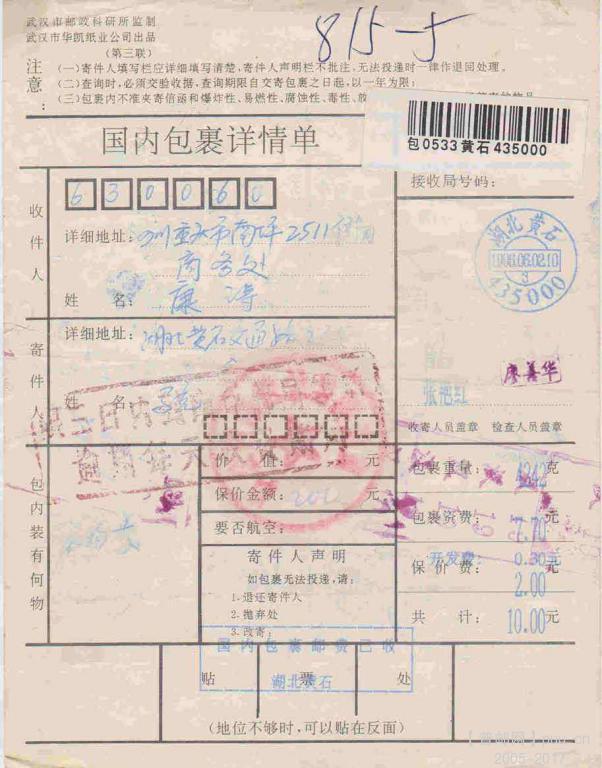 武汉市邮政科研所监制
武汉市华凯纸业公司出品
(第三联)
815-5
注意:
(一)寄件人填写栏应详细填写清楚,寄件人声明栏不批注,无法投递时一律作退回处理。
(二)查询时,必须交验收据,查询期限自交寄包裹之日起,以一年为限;
(三)包裹内不准夹寄信函和爆炸性、易燃性、腐蚀性、毒性、
国内包裹详情单
包0533黄石435000
接收局号码:
收件人
630060
详细地址: 南坪2511
商务处
姓 名: 康涛
湖北黄石
1996.06.02.10
3
435000
寄件人
详细地址: 湖北黄石交通路
姓 名:
廖善华
张艳红
收寄人员盖章 检查人员盖章
包内装有何物
价 值: 元
保价金额: 200 元
要否航空:
寄件人声明
如包裹无法投递,请:
1.退还寄件人
2.抛弃处
3.改寄:
包裹重量: 4242克
包裹资费: 7.70元
开发费: 0.30元
保价费: 2.00元
共 计: 10.00元
国内包裹邮费已收
湖北黄石
贴 票 处
(地位不够时,可以贴在反面)
2005-2017